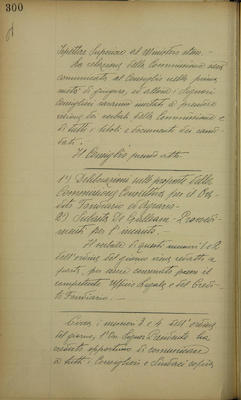 300
Ispettore Superiore al Ministero stesso. -
La relazione della Commissione sarà
comunicata al Consiglio nella prima
metà di giugno, ed allora i Signori
Consiglieri saranno invitati a prendere
visione dei verbali della Commissione e
di tutti i titoli e documenti dei candi-
dati.
Il Consiglio prende atto.
1°) Deliberazioni sulle proposte della
Commissione Consultiva per il Cre-
dito Fondiario ed Agrario.
2°) Subasta De Galleani - Provvedi-
menti per l'incanto. -
Il verbale di questi numeri 1 e 2
dell'ordine del giorno viene redatto a
parte, per essere conservato presso il
competente Ufficio Legale e del Credi-
to Fondiario. -
Circa i numeri 3 e 4 dell'ordine
del giorno, l'On. Signor Presidente ha
creduto opportuno di comunicare
a tutti i Consiglieri e Sindaci copia